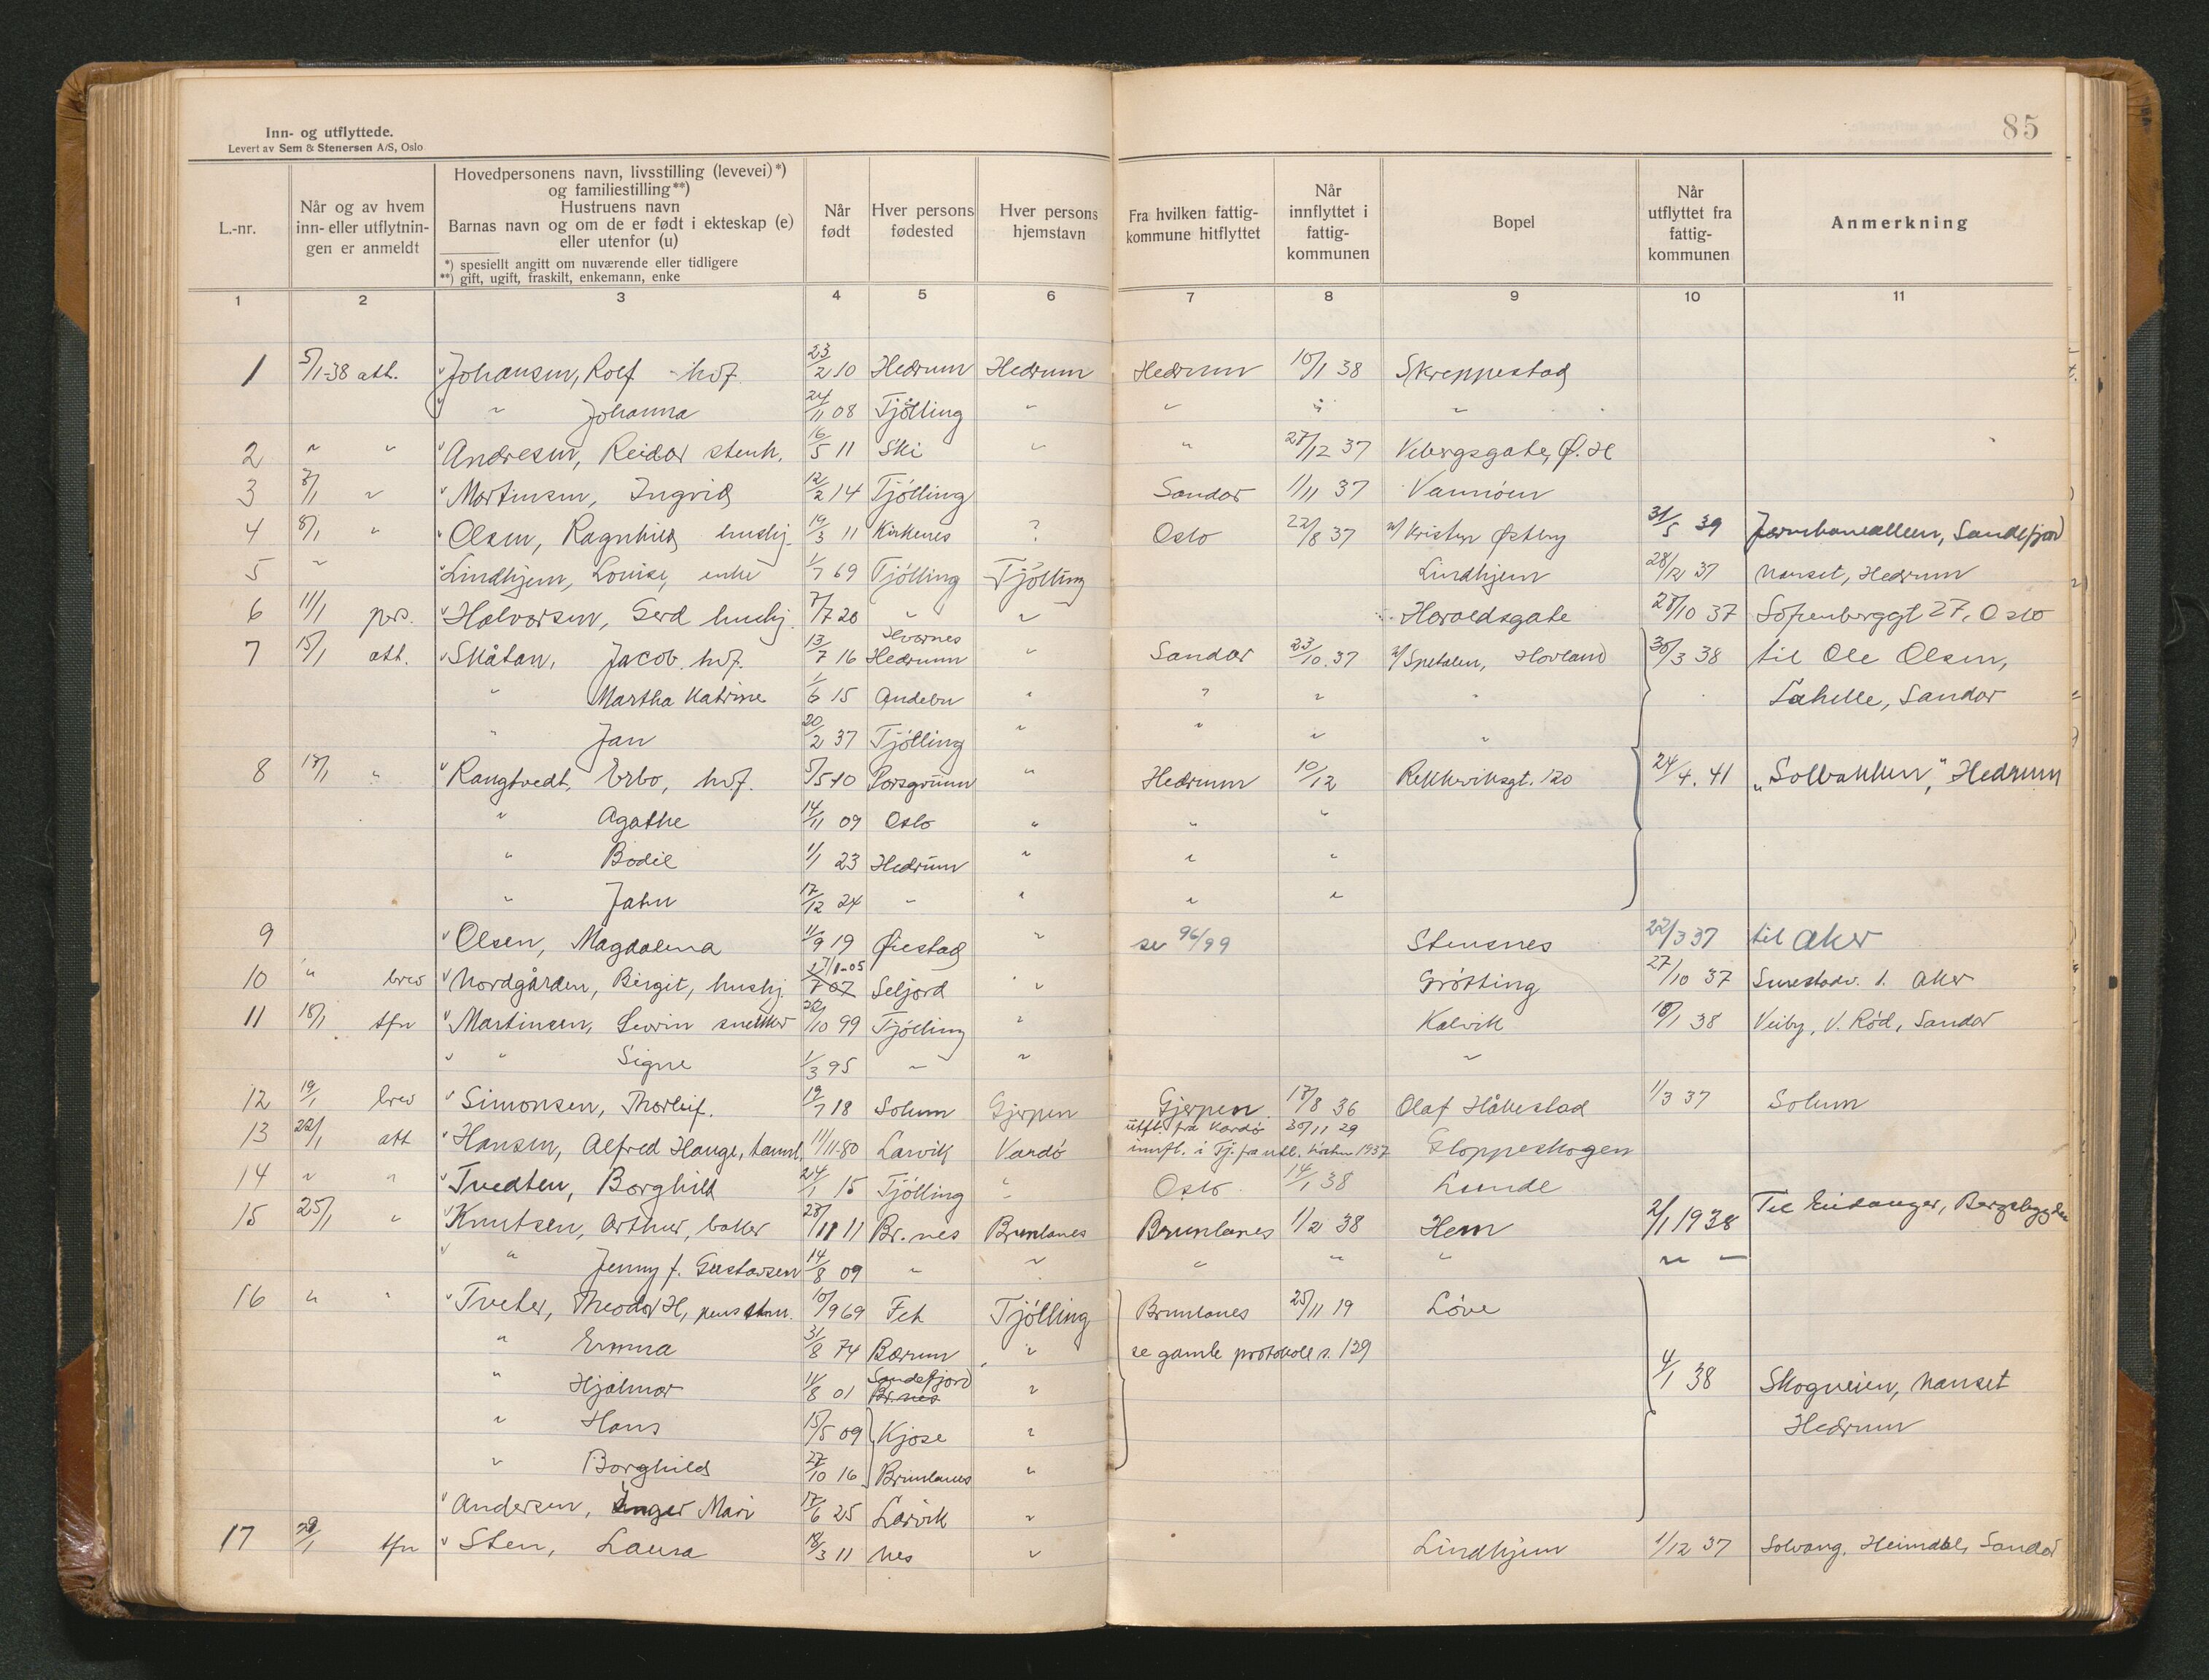 85
Inn- og utflyttede.
Levert av Sem & Stenersen A/S, Oslo
L.-nr.
Når og av hvem inn- eller utflytnin-gen er anmeldt
Hovedpersonens navn, livsstilling (levevei)*)
og familiestilling**)
Hustruens navn
Barnas navn og om de er født i ekteskap (e)
eller utenfor (u)
*) spesiellt angitt om nuværende eller tidligere
**) gift, ugift, fraskilt, enkemann, enke
Når født
Hver persons fødested
Hver persons hjemstavn
Fra hvilken fattig-kommune hitflyttet
Når innflyttet i fattig-kommunen
Bopel
Når utflyttet fra fattig-kommunen
Anmerkning
1 2 3 4 5 6 7 8 9 10 11
1 5/1-38 att. Johansen, Rolf hvf. 23/2 10 Hedrum Hedrum Hedrum 10/1 38 Skreppestad
" Johanna 24/11 08 Tjølling " " " "
2 " " Andresen, Reidar stenh. 16/5 11 Ski " " 27/12 37 Vebergsgate, Ø.H
3 8/1 " Martinsen, Ingrid 12/2 14 Tjølling Sandar 1/11 37 Vannøen
4 8/1 " Olsen, Ragnhild hushj. 19/3 11 Kirkenes ? Oslo 22/8 37 v/ Kristen Østby 31/5 39 Jernbanealleen, Sandefjord
5 " Lindhjem, Louise, enke 1/7 69 Tjølling Tjølling Lindhjem 28/12 37 Nanset, Hedrum
6 11/1 pers. Halvorsen, Gerd hushj. 7/7 20 " " Haraldsgate 27/10 37 Sofienberggt 27, Oslo
7 15/1 att. Skåtan, Jacob. hvf. 13/7 16 Hvarnes Hedrum " Sandar 23/10. 37 v/ Spetalen, Hovland 30/3 38 til Ole Olsen,
" Martha Katrine 1/6 15 Andebu " " " " Lahelle, Sandar
" Jan 20/2 37 Tjølling " " " "
8 17/1 " Rangtvedt, Erbo, hvf. 5/5 10 Porsgrunn " Hedrum 10/12 Rekkeviksgt. 120 24/4. 41 "Solbakken", Hedrum
" Agathe 14/11 09 Oslo " " "
" Bodil 1/1 23 Hedrum " " "
" Jahn 17/12 24 " " " "
9 Olsen, Magdalena 11/9 19 Øiestad " se 96/99 Stensnes 22/3 37 til Aker
10 " brev Nordgården, Birgit, hushj. 17/1-05 7 07 Seljord " Grøtting 27/10 37 Aker
11 18/1 tfn Martinsen, Severin snekker 22/10 99 Tjølling " Kalvik 18/1 38 Veiby, V. Rød, Sandar
" " Signe 1/3 95 " " "
12 19/1 brev Simonsen, Thorleif. 19/7 18 Solum Gjerpen Gjerpen 17/8 36 Olaf Håkestad 1/3 37 Solum
13 22/1 att Hansen, Alfred Hauge, 11/11-80 Larvik Vardø utfl. fra Vardø 30/11 29
innfl. i Tj. fra utl. høsten 1937 Gloppeskogen
14 " " Tvedten, Borghild 24/1 15 Tjølling " Oslo 14/1 38 Lunde
15 25/1 " Knutsen, Arthur, baker 28/11 11 Br.nes Brunlanes Brunlanes 1/2 38 Hem 2/1 1938 Til Eidanger, Bergsbygden
" " Jenny f. Gustavsen 14/8 09 " " " " " " "
16 " " Tveter, Theodor H, pens 10/9 69 Fet Tjølling Brunlanes 25/11 19 Løve
" Emma 31/8 74 Bærum " se gamle protokoll s. 129
" Hjalmar 11/8 01 Sandefjord Br.nes " 4/1 38 Skogveien, Nanset
" Hans 15/5 09 Kjose " Hedrum
" Borghild 27/10 16 Brunlanes "
Andersen, Inger Mari 17/6 25 Larvik "
17 29/1 tfn Sten, Laura 18/3 11 Nes " Lindhjem 1/12 37 Solvang, Heimdal, Sandar